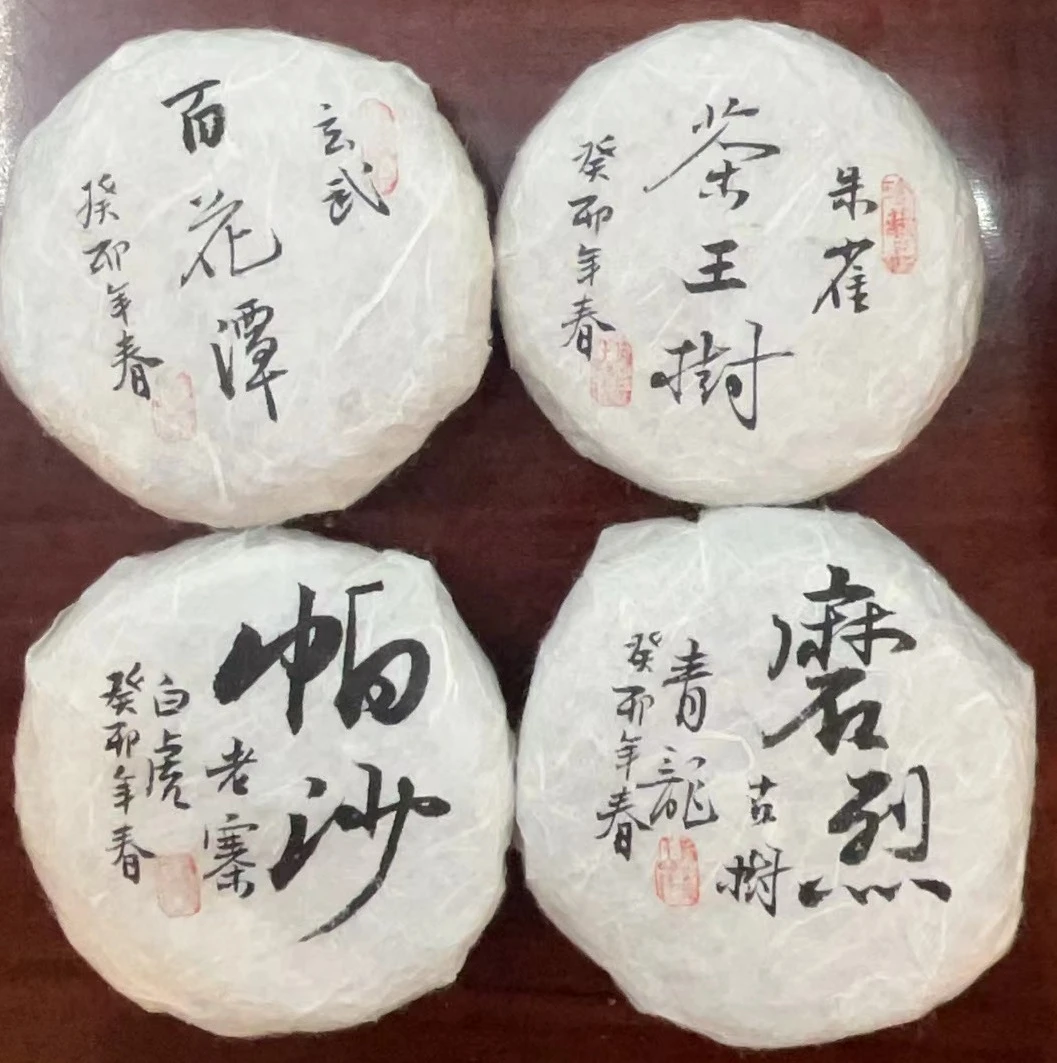 玄武
百花潭
癸卯年春
朱雀
茶王樹
癸卯年春
帕沙
老寨
白虎
癸卯年春
磨烈
古樹
青龍
癸卯年春